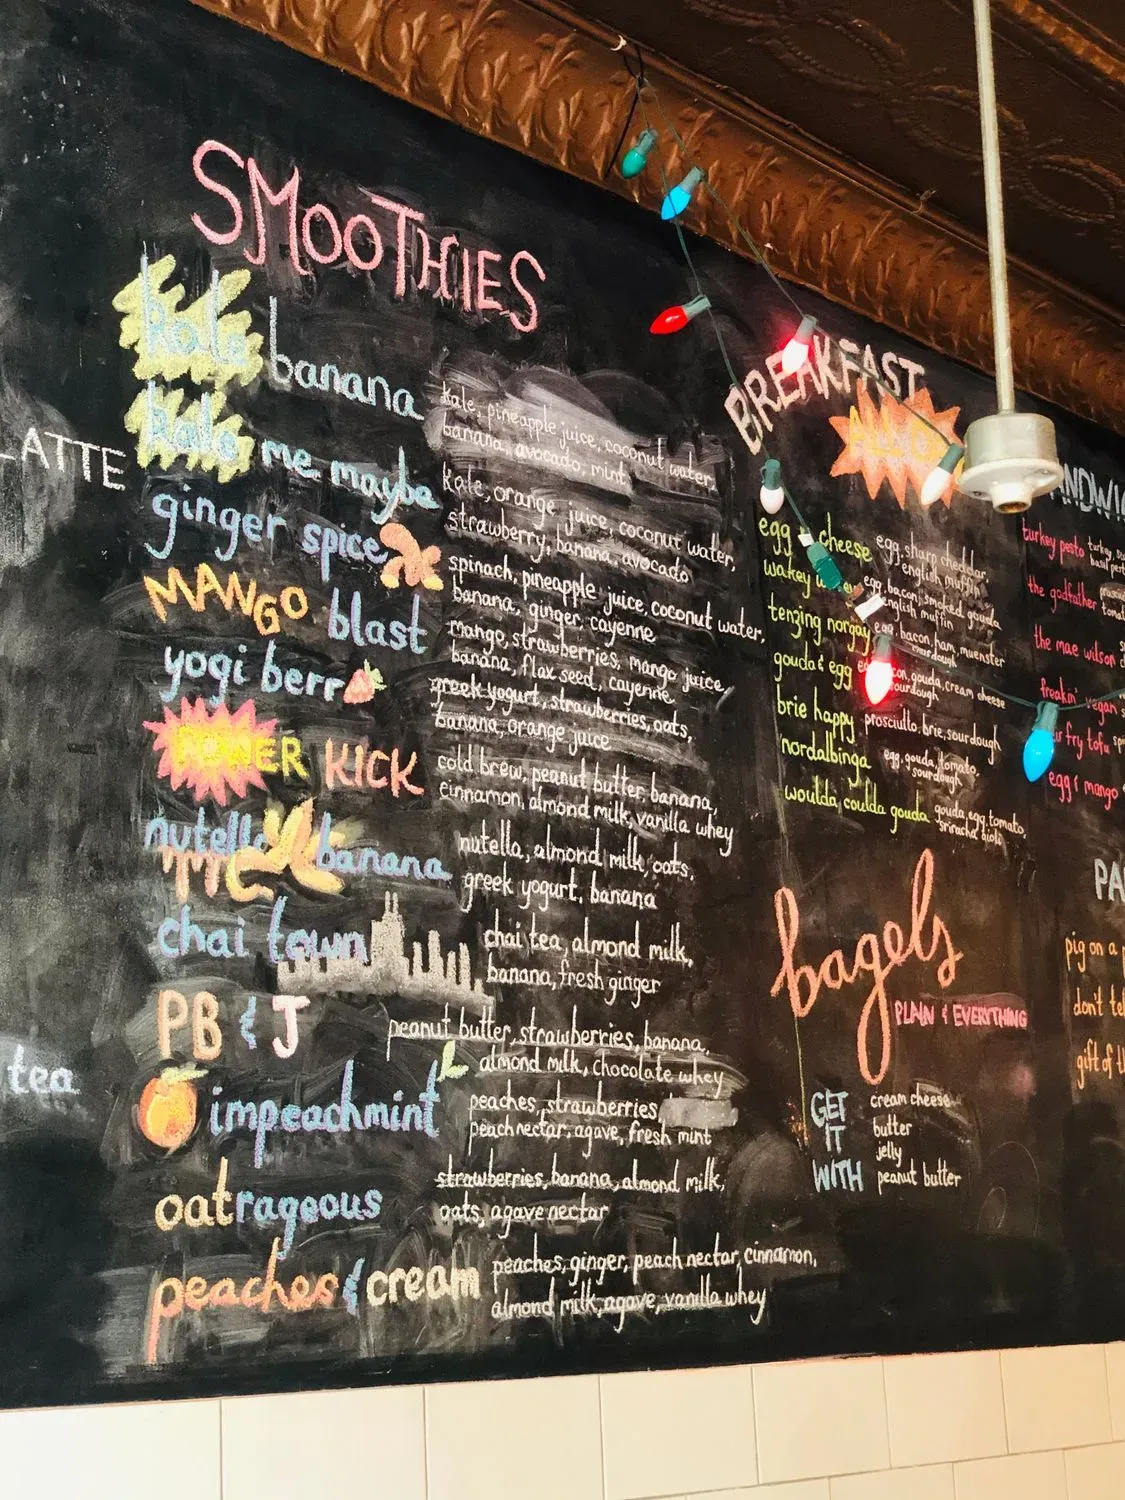 SMOOTHIES
kale banana
kale, pineapple juice, coconut water,
banana, avocado, mint
kale me maybe
kale, orange juice, coconut water,
strawberry, banana, avocado
ginger spice
spinach, pineapple juice, coconut water,
banana, ginger, cayenne
MANGO blast
mango, strawberries, mango juice,
banana, flax seed, cayenne
yogi berr
greek yogurt, strawberries, oats,
banana, orange juice
POWER KICK
cold brew, peanut butter, banana,
cinnamon, almond milk, vanilla whey
nutella banana
nutella, almond milk, oats,
greek yogurt, banana
chai town
chai tea, almond milk,
banana, fresh ginger
PB & J
peanut butter, strawberries, banana,
almond milk, chocolate whey
impeachmint
peaches, strawberries
peach nectar, agave, fresh mint
oatrageous
strawberries, banana, almond milk,
oats, agave nectar
peaches & cream
peaches, ginger, peach nectar, cinnamon,
almond milk, agave, vanilla whey
LATTE
tea
BREAKFAST
egg & cheese
egg, sharp cheddar,
english muffin
wakey
egg, bacon, smoked gouda,
english muffin
tenzing norgay
egg, bacon, ham, muenster
sourdough
gouda & egg
bacon, gouda, cream cheese
sourdough
brie happy
prosciutto, brie, sourdough
nordalbinga
egg, gouda, tomato,
sourdough
woulda, coulda gouda
gouda, egg, tomato,
sriracha aioli
bagels
PLAIN & EVERYTHING
GET
IT
WITH
cream cheese
butter
jelly
peanut butter
turkey pesto
turkey,
basil
the godfather
the mae wilson
freakin' vegan
fry tofu
egg & mango
PA
pig on a
don't
gift of